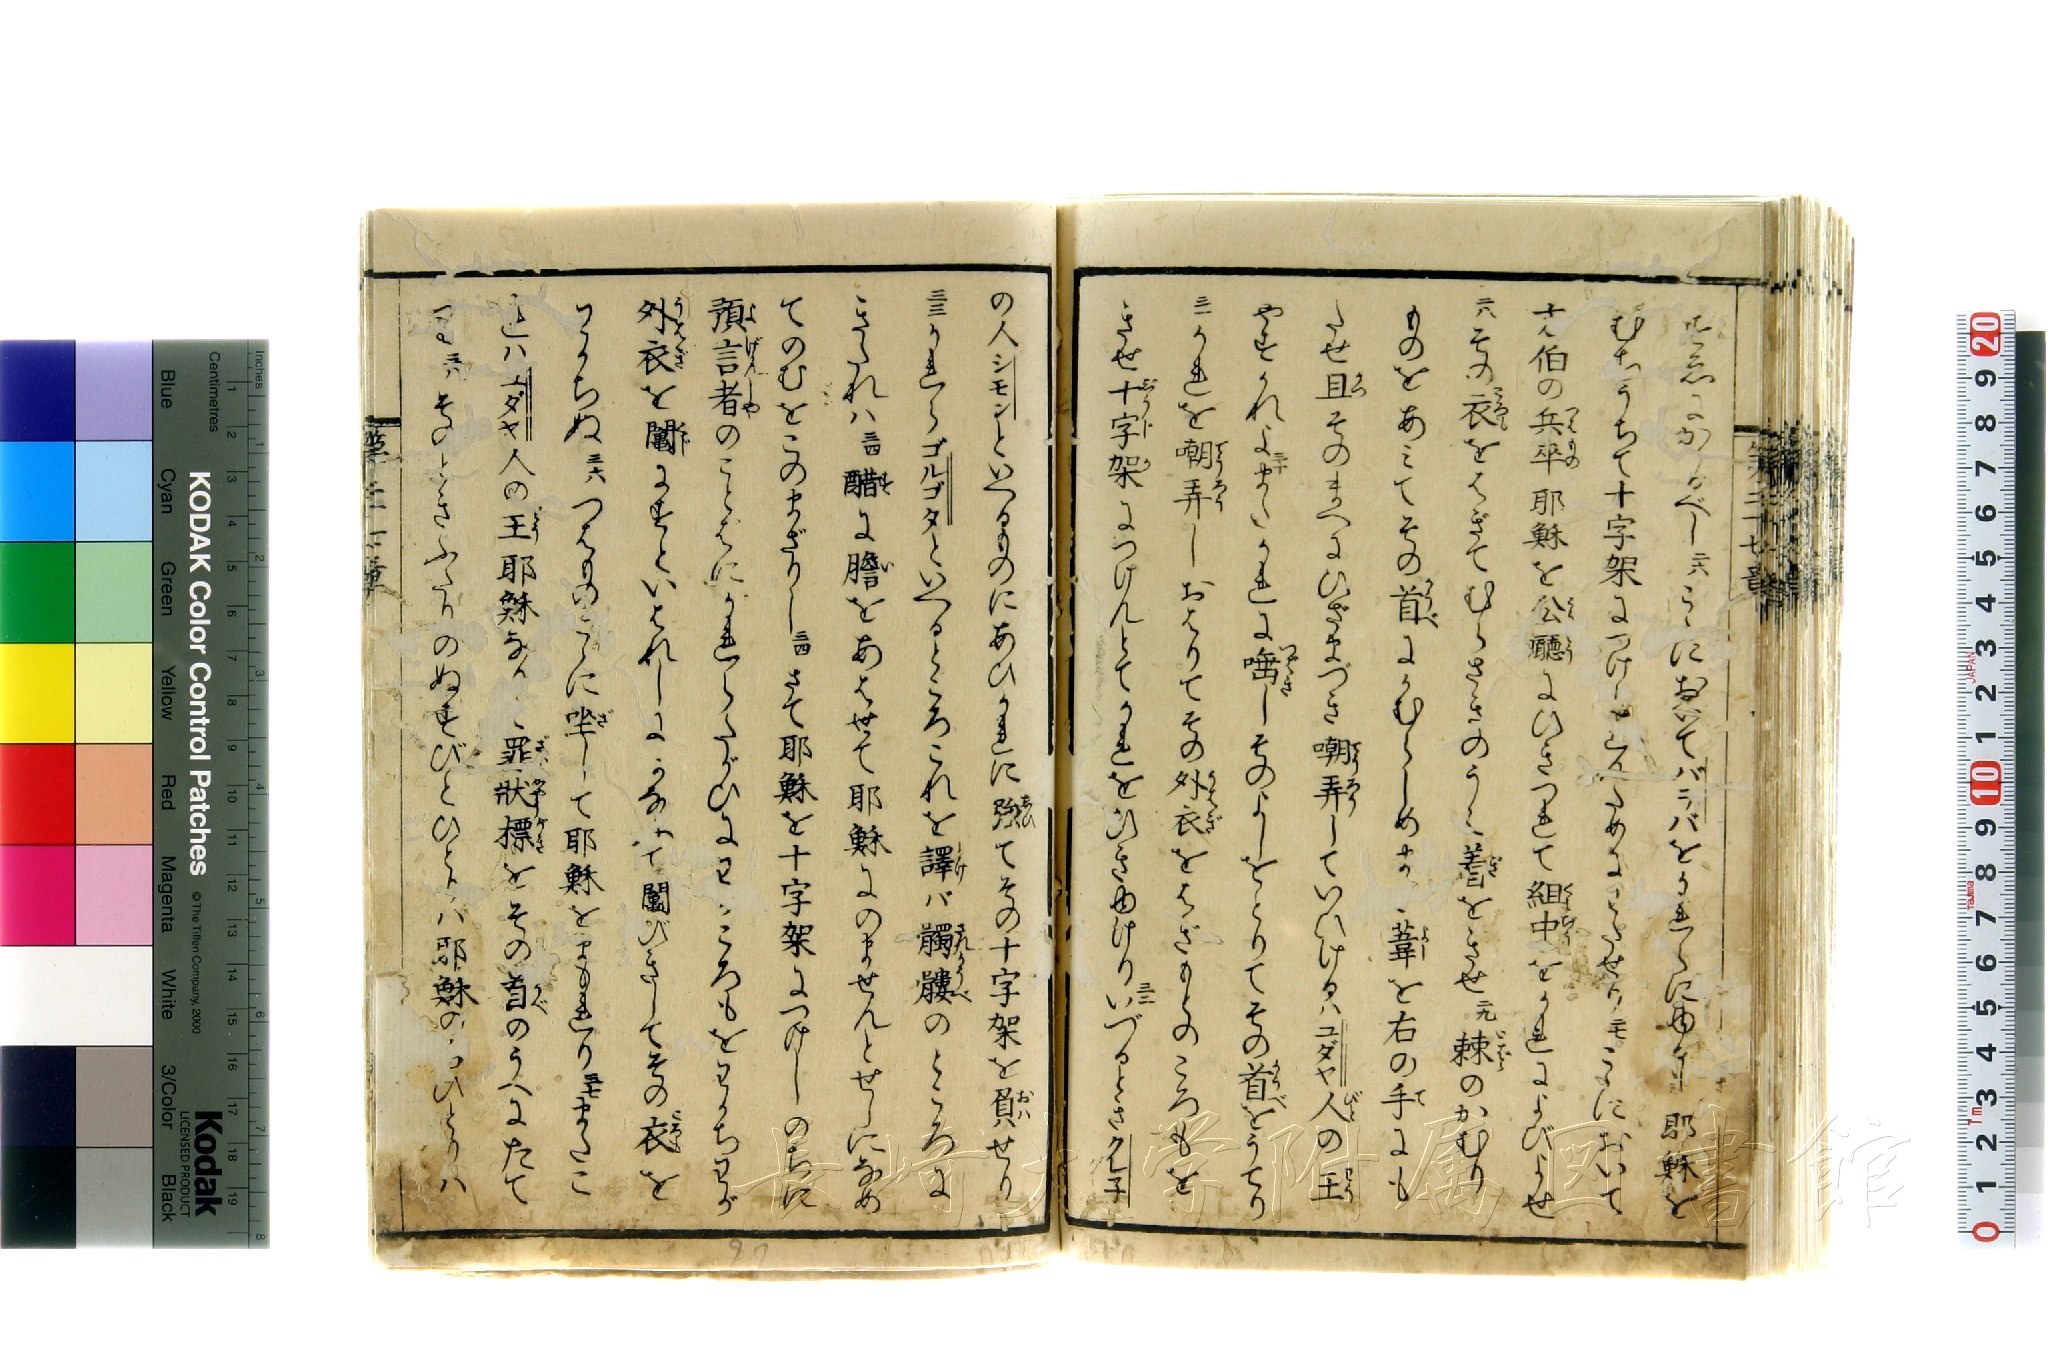 むちうちて十字架につけしむるためにわたせり 二七 こゝにおいて
方伯の兵卒耶穌を公廳にひきつれて組中をかれによびよせ
二八 その衣をはぎてむらさきのうヽ着をきせ 二九 棘のかむり
ものをあみてその首にかむらしめまヽ葦を右の手にも
たせ且そのまへにひざまづき嘲弄していひけるハユダヤ人の王
やすかれ 三十 またかれに唾しそのよしをとりてその首をうてり
三一 かれを嘲弄しおはりてその外衣をはぎもとのころもを
きせ十字架につけんとてかれをひきゆけり 三二 いづるときクレ子
の人シモンといへるものにあひかれに強てその十字架を負ハせり
三三 かれらゴルゴタといへるところこれを譯バ髑髏のところに
きたれハ 三四 醋に膽をあはせて耶穌にのませんとせしになめ
てのむをこのまざりし 三四 さて耶穌を十字架につけしのちに
預言者のことばにかれらたがひにわヽころもをわかちわが
外衣を鬮にすといはれしにかなはて鬮びきしてその衣を
わかちぬ 三六 つはものこヽに坐して耶穌をまもれり 三七 またこ
れハユダヤ人の王耶穌なりヽ罪状標をその首のうへにたて
たり 三八 そのときふたりのぬすびとひとりハ耶穌の右ひとりハ
第二十七章
KODAK Color Control Patches
© The Tiffen Company, 2000
Kodak
LICENSED PRODUCT
Inches
Centimetres
Blue
Cyan
Green
Yellow
Red
Magenta
White
3/Color
Black
長崎大学附属図書館
JAPAN
Tajima